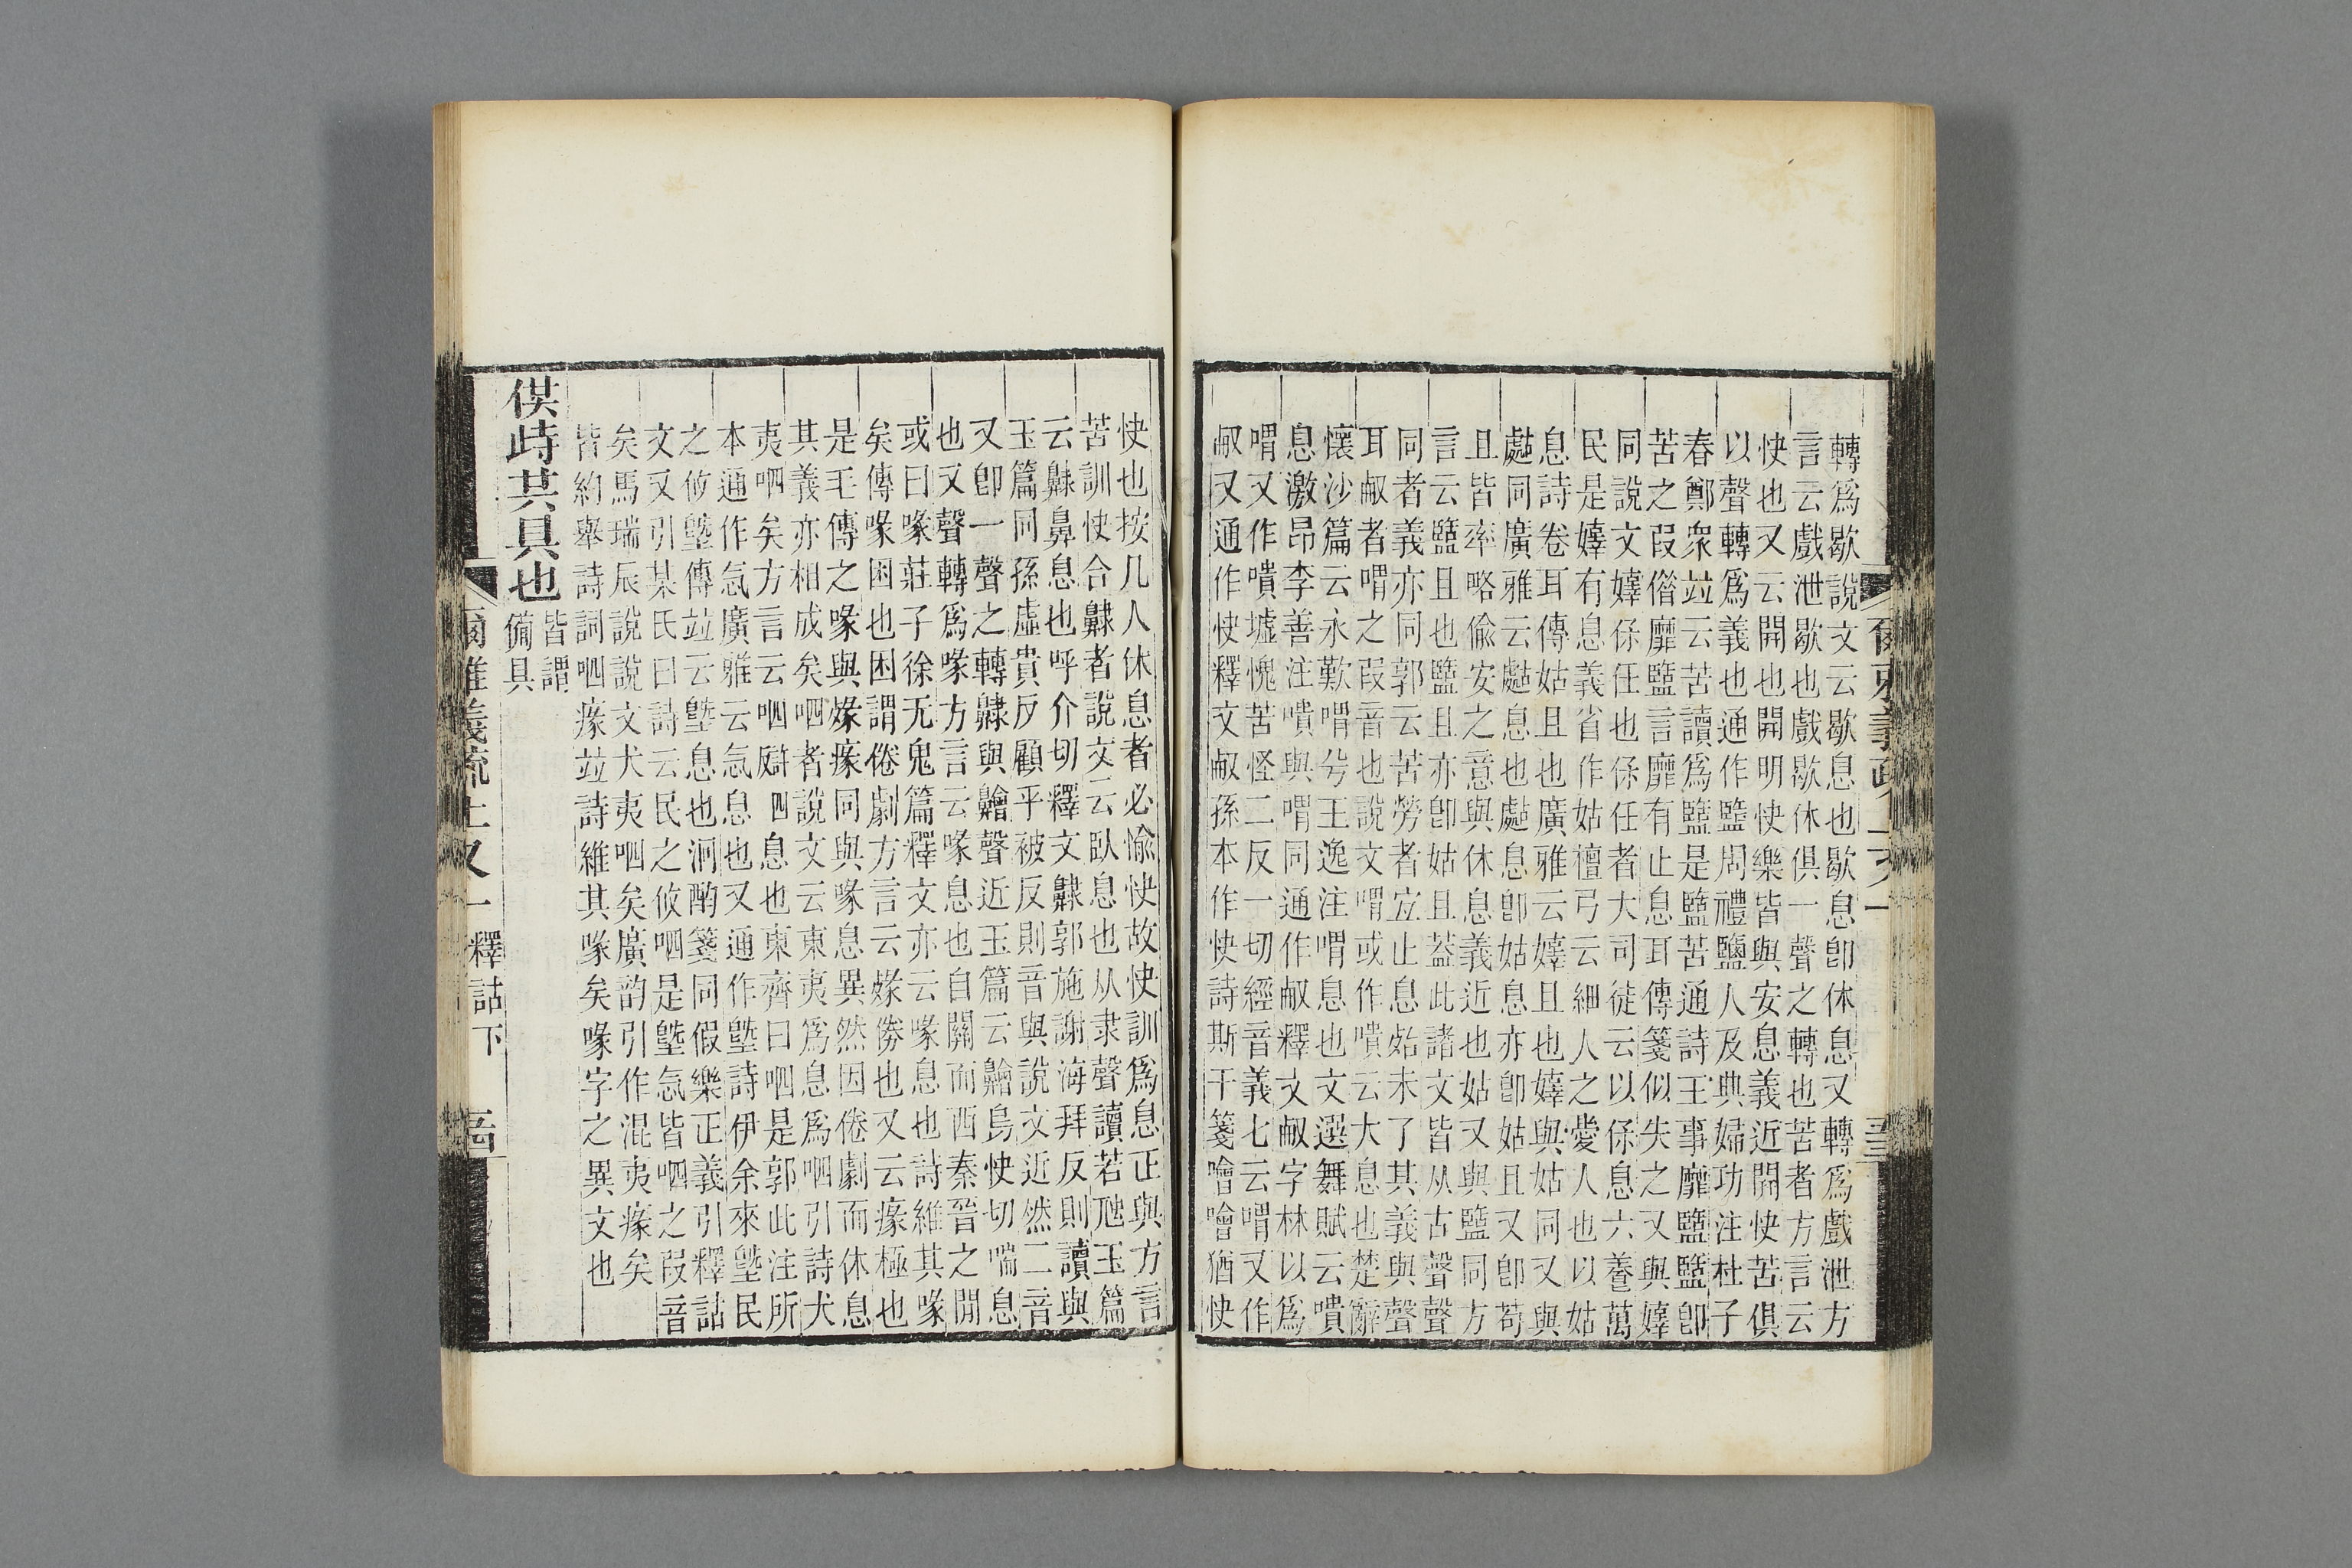 轉爲歇說文云歇息也歇息卽休息又轉爲戲泄方
言云戲泄歇也戲歇休俱一聲之轉也苦者方言云
快也又云開也開明快樂皆與安息義近開快苦俱
以聲轉爲義也通作盬周禮鹽人及典婦功注杜子
春鄭衆竝云苦讀爲盬是盬苦通詩王事靡盬盬卽
苦之叚借靡盬言靡有止息耳傳箋似失之又與婞卽
同說文婞保任也保任者大司徒云以保息六養萬
民是婞有息義省作姑檀弓云細人之愛人也以姑
息詩卷耳傳姑且也廣雅云婞且也婞與姑同又與
盬同廣雅云盬息也盬息卽姑息亦卽姑且又卽苟
且皆率略偷安之意與休息義近也姑又與盬同方
言云盬且也盬且亦卽姑且葢此諸文皆从古聲聲
同者義亦同郭云苦勞者宐止息殆未了其義與聲
耳㕟者喟之叚音也說文喟或作嘳云大息也楚辭
懷沙篇云永歎喟兮王逸注喟息也文選舞賦云嘳
息激昂李善注嘳與喟同通作㕟釋文㕟字林以爲
喟又作嘳墟愧苦怪二反一切經音義七云喟又作
㕟又通作快釋文㕟孫本作快詩斯干箋噲噲猶快
快也按凡人休息者必愉快故快訓爲息正與方言
苦訓快合齂者說文云臥息也从隶聲讀若虺玉篇
云齂鼻息也呼介切釋文齂郭施謝海拜反則讀與
玉篇同孫虛貴反顧乎被反則音與說文近然二音
又卽一聲之轉齂與䶐聲近玉篇云䶐烏快切喘息
也又聲轉爲喙方言云喙息也自關而西秦晉之閒
或曰喙莊子徐无鬼篇釋文亦云喙息也詩維其喙
矣傳喙困也困謂倦劇方言云㱯㑰也又云瘃極也
是毛傳之喙與㱯瘃同與喙息異然因倦劇而休息
其義亦相成矣呬者說文云東夷爲息爲呬引詩犬
夷呬矣方言云呬㕑四息也東齊曰呬是郭此注所
本通作氣廣雅云氣息也又通作墍詩伊余來墍民
之攸墍傳竝云墍息也泂酌箋同假樂正義引釋詁
文又引某氏曰詩云民之攸呬是墍氣皆呬之叚音
矣馬瑞辰說說文犬夷呬矣廣韵引作混夷瘃矣
皆約舉詩詞呬瘃竝詩維其喙矣喙字之異文也
供峙共具也皆謂
備具
爾雅義疏上又一 釋詁下